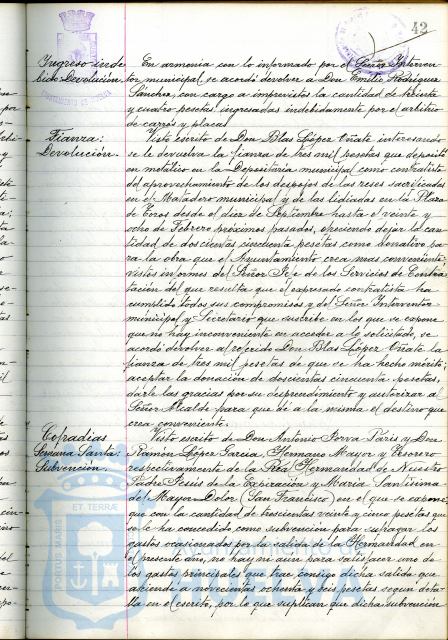 42
Ingreso inde
bido: Devolución.
En armonía con lo informado por el Señor Interven
tor municipal se acordó devolver a Don Emilio Rodríguez
Sánchez, con cargo a imprevistos la cantidad de treinta
y cuatro pesetas ingresadas indebidamente por el arbitrio
de carros y placas
Fianza:
Devolución.
Visto escrito de Don Blas López Oñate interesando
se le devuelva la fianza de tres mil pesetas que depositó
en metálico en la Depositaria municipal como contratista
del aprovechamiento de los despojos de las reses sacrificadas
en el Matadero municipal y de las lidiadas en la Plaza
de Toros desde el diez de Septiembre hasta el veinte y
ocho de Febrero próximos pasados, ofreciendo dejar la can
tidad de doscientas cincuenta pesetas como donativo pa
ra la obra que el Ayuntamiento crea mas conveniente;
vistos informes del Señor Jefe de los Servicios de Contra
tación del que resulta que el expresado contratista ha
cumplido todos sus compromisos y del Señor Interventor
municipal y Secretario que suscribe en los que se expone
que no hay inconveniente en acceder a lo solicitado, se
acordó devolver al referido Don Blas López Oñate la
fianza de tres mil pesetas de que se ha hecho mérito;
aceptar la donación de doscientas cincuenta pesetas,
darle las gracias por su desprendimiento y autorizar al
Señor Alcalde para que dé a la misma el destino que
crea conveniente.
Cofradias
Semana Santa:
Subvención.
Visto escrito de Don Antonio Jorva Paris y Don
Ramón López García, Hermano Mayor y Tesorero
respectivamente de la Real Hermandad de Nuestro
Padre Jesús de la Expiración y Maria Santisima
del Mayor Dolor (San Francisco) en el que se expone
que con la cantidad de trescientas veinte y cinco pesetas que
se le ha concedido como subvención para sufragar los
gastos ocasionados por la salida de la Hermandad en
el presente año, no hay ni aun para satisfacer uno de
los gastos principales que trae consigo dicha salida que
asciende a novecientas ochenta y seis pesetas segun deta
lla en el escrito, por lo que suplican que dicha subvención
ET TERRÆ
Ayuntamiento de